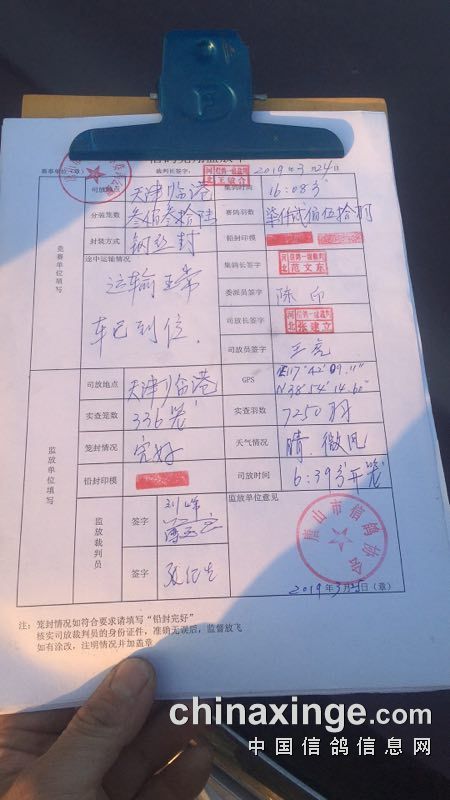 赛事单位(章) 裁判长签字: 2019年3月24日
竞赛单位填写
司放地点 天津临港 集鸽时间 16:08分
分装笼数 叁佰叁拾陆 参鸽羽数 柒仟贰佰伍拾羽
封装方式 钢丝封 铅封印模
途中运输情况 集鸽长签字 范文东
运输正常 委派员签字 陈印
车已到位. 司放长签字 张建立
司放员签字 王亮
监放单位填写
司放地点 天津临港 GPS E117°42′09.11″
N38°54′14.60″
实查笼数 336笼 实查羽数 7250羽
笼封情况 完好 天气情况 晴.微风
铅封印模 司放时间 6:39分开笼
监放裁判员 签字 监放单位意见
签字
唐山市信鸽协会
2019年3月25日(章)
注: 笼封情况如符合要求请填写“铅封完好”
核实司放裁判员的身份证件,准确无误后,监督放飞
如有涂改,注明情况并加盖章
chinaxinge.com
中国信鸽信息网